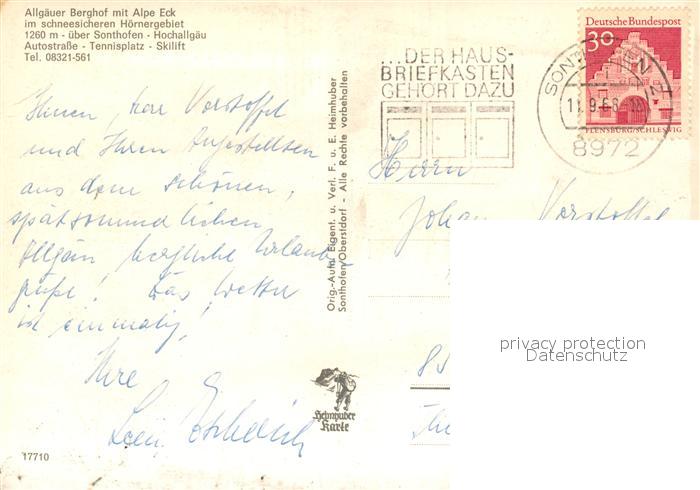 Allgäuer Berghof mit Alpe Eck
im schneesicheren Hörnergebiet
1260 m - über Sonthofen - Hochallgäu
Autostraße - Tennisplatz - Skilift
Tel. 08321-561
Ihnen, Herr Vorstoffel
und Ihren Angestellten
aus dem schönen,
spätsommerlichen
Allgäu herzliche Urlaubs-
grüße! Das Wetter
ist einmalig!
Ihre
17710
Orig.-Aufn. Eigent. u. Verl. F. u. E. Heimhuber
Sonthofen/Oberstdorf - Alle Rechte vorbehalten
Heimhuber
Karte
...DER HAUS-
BRIEFKASTEN
GEHÖRT DAZU
SONTHOFEN
11.9.68
8972
Deutsche Bundespost
30
FLENSBURG/SCHLESWIG
Herrn
Johann Vorstoffel
privacy protection
Datenschutz